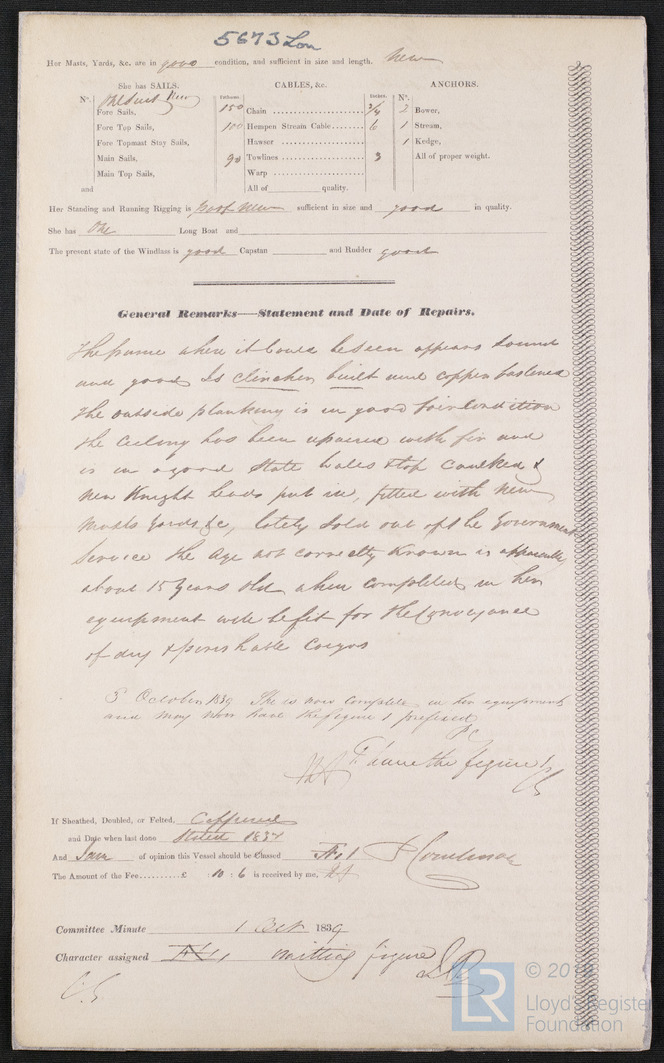 5673 Lon
Her Masts, Yards, &c. are in good condition, and sufficient in size and length. New
She has SAILS.
N°. One Suit New
Fore Sails,
Fore Top Sails,
Fore Topmast Stay Sails,
Main Sails,
Main Top Sails,
and
CABLES, &c.
Fathoms. Inches.
150 Chain 3/4
100 Hempen Stream Cable 6
Hawser
90 Towlines 3
Warp
All of quality.
ANCHORS.
N°.
2 Bower,
1 Stream,
1 Kedge,
All of proper weight.
Her Standing and Running Rigging is New sufficient in size and good in quality.
She has One Long Boat and
The present state of the Windlass is good Capstan and Rudder good
General Remarks—Statement and Date of Repairs.
The frame where it could be seen appears sound
and good Is clincher built and copper fastened
the outside planking is in good fair condition
the Ceeling has been repaired with fir and
is in a good State Wales & top Caulked &
New Knight heads put in, fitted with New
Masts Yards &c, lately Sold out of the Government
Service the Age not correctly Known is apparently
about 15 Years Old when completed in her
equipment will be fit for the Conveyance
of dry & perishable Cargos
3 October 1839 She is now complete in her equipment
and may now have the figure 1 prefixed
I have the figure 1
CS
If Sheathed, Doubled, or Felted, Coppered
and Date when last done Stated 1837
And I am of opinion this Vessel should be Classed Æ 1
The Amount of the Fee £ : 10 : 6 is received by me,
Committee Minute 1 Oct 1839
Character assigned Æ 1 omitting figure
CS
LR
© 2019
Lloyd's Register
Foundation